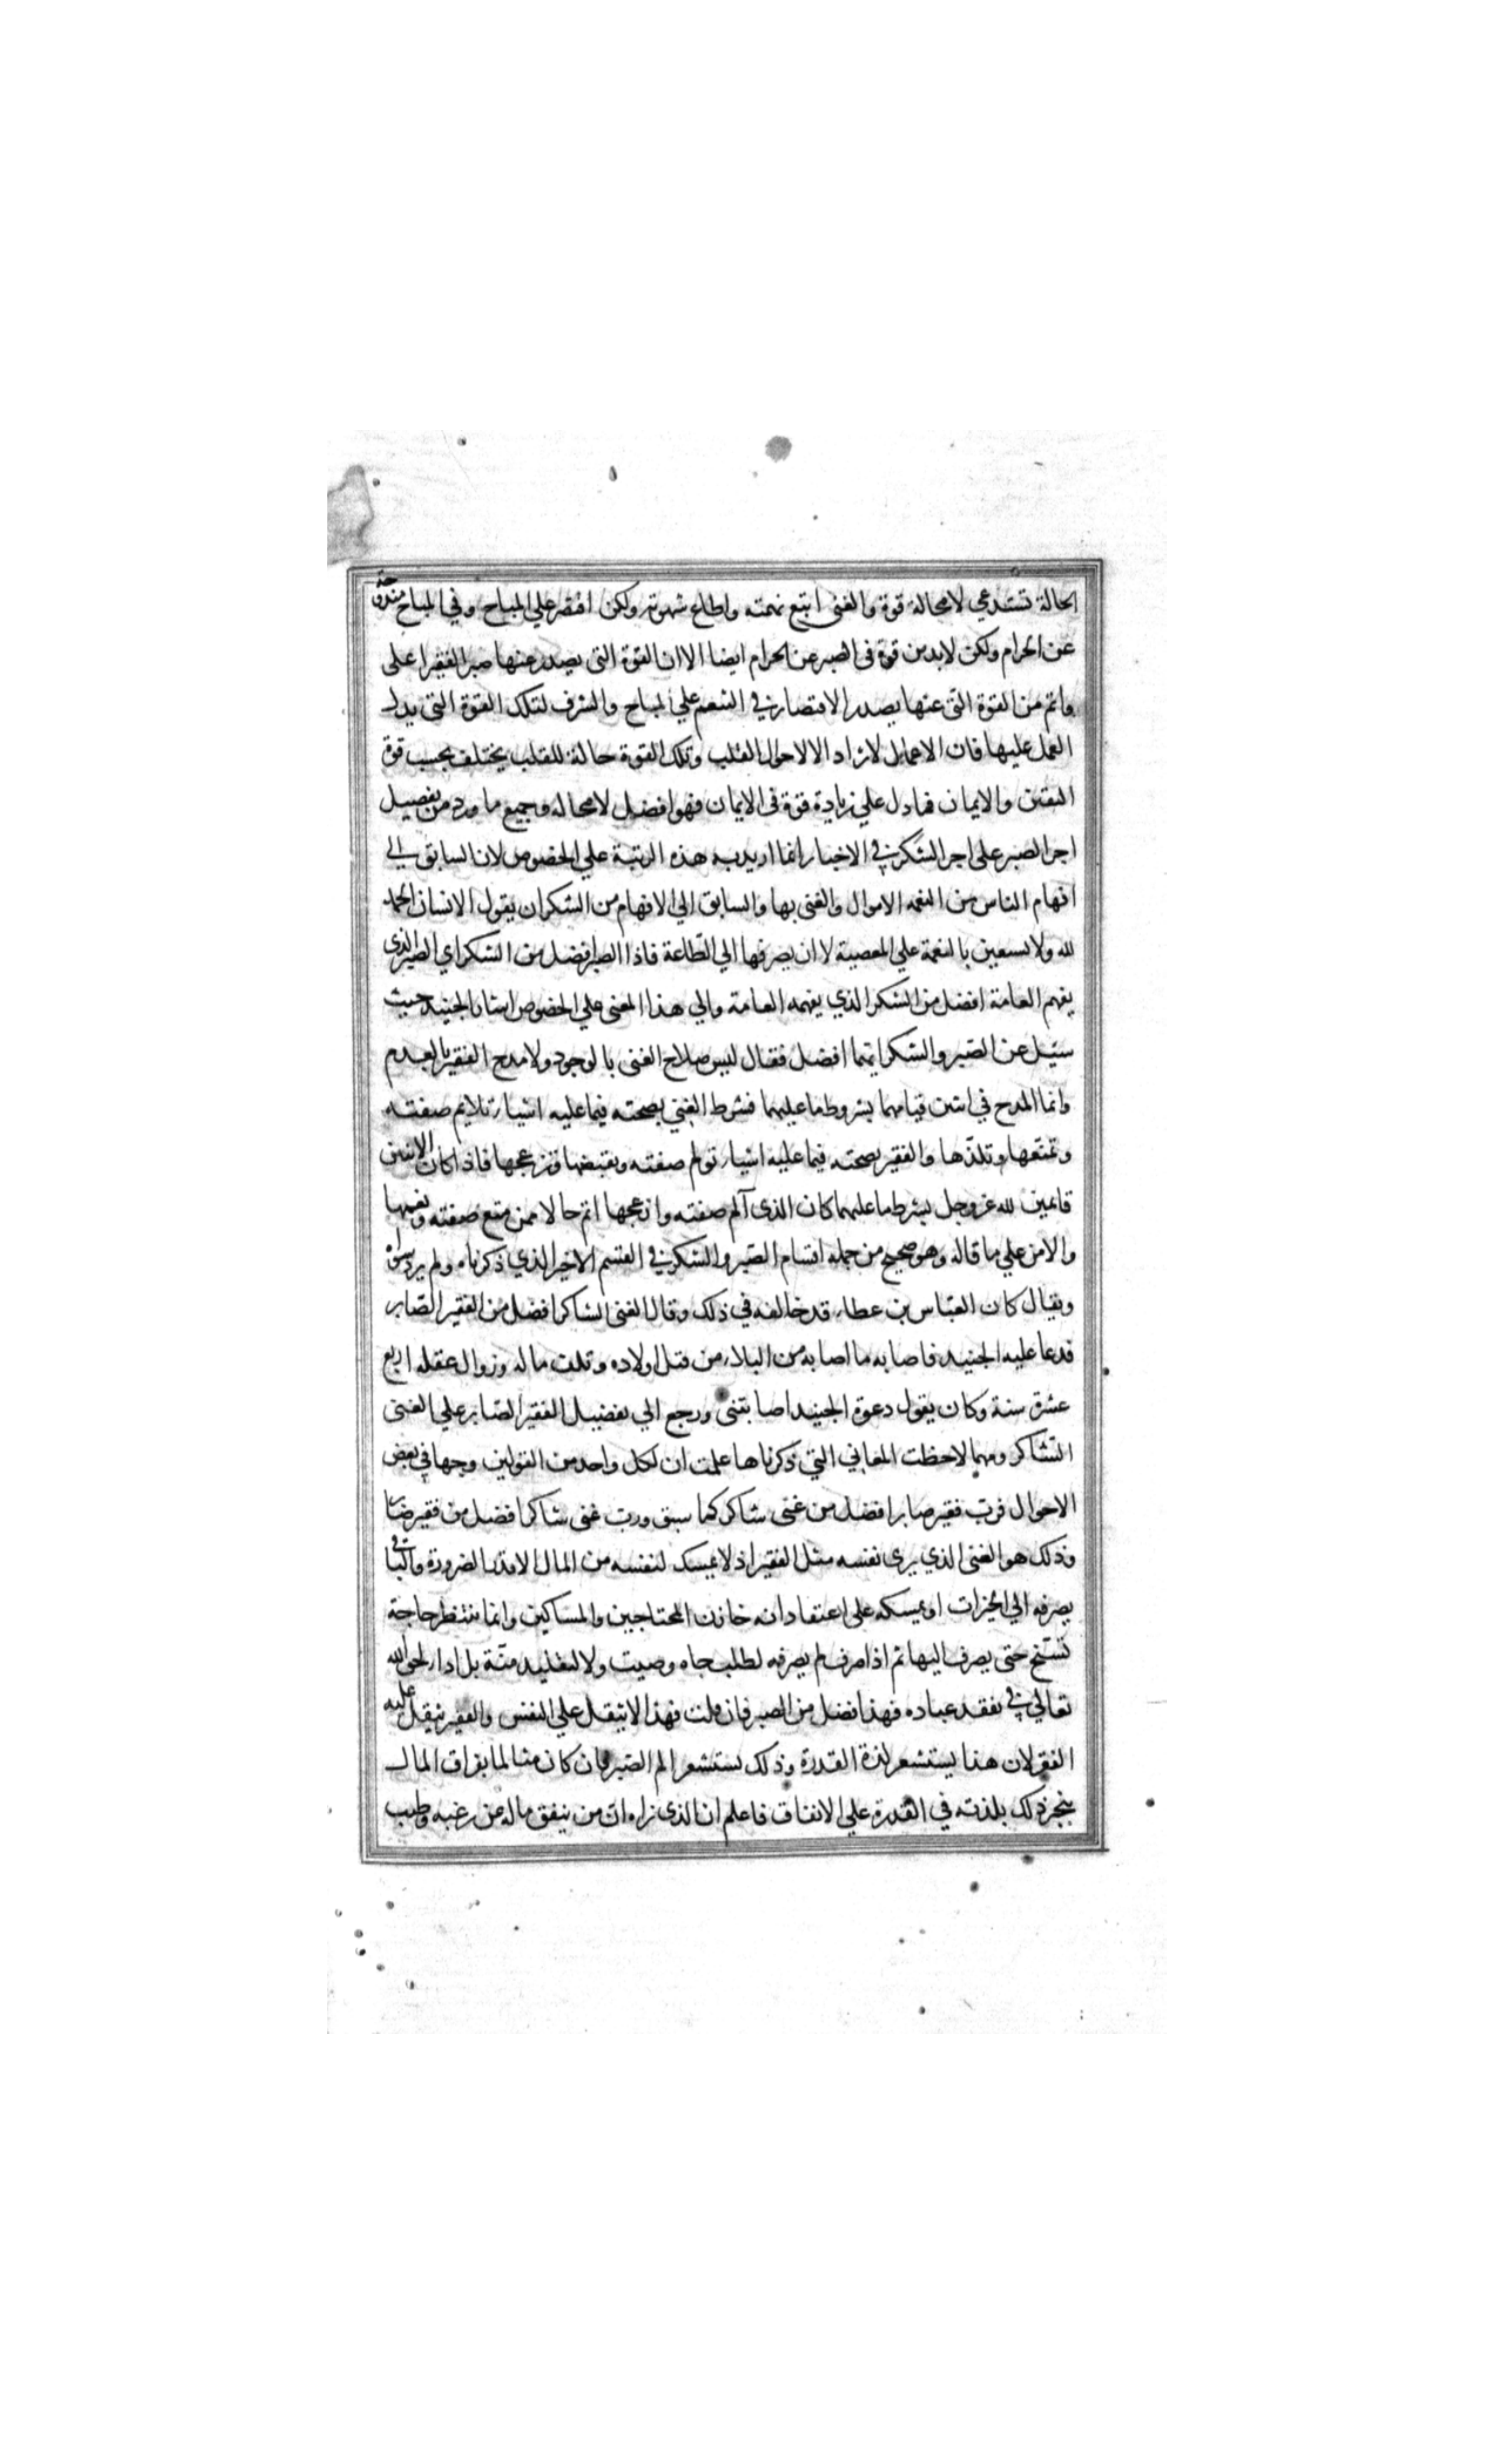 الحالة تستدعي لامحالة قوة والغنى اتبع نهمته واطاع شهوته ولكن اقتصر علي المباح وفي المباح مندوحة
عن الحرام ولكن لابد من قوة في الصبر عن الحرام ايضا الا ان القوة التي يصدر عنها صبر الفقير اعلى
واتم من القوة التي عنها يصدر الاقتصار في التنعم علي المباح والشرف لتلك القوة التي يدل
العمل عليها فان الاعمال لا تراد الا لاحوال القلب وتلك القوة حالة للقلب يختلف بحسب قوة
اليقين والايمان فما دل علي زيادة قوة في الايمان فهو افضل لا محالة وجميع ما ورد من تفصيل
اجر الصبر على اجر الشكر في الاخبار انما اريد به هذه الرتبة علي الخصوص لان السابق الي
افهام الناس من النعمه الاموال والغنى بها والسابق الي الافهام من الشكر ان يقول الانسان الحمد
لله ولا يستعين بالنعمة علي المعصية لا ان يصرفها الي الطاعة فاذا الصبر افضل من الشكر اي الصبر الذي
يفهم العامة افضل من الشكر الذي يفهمه العامة والي هذا المعنى علي الخصوص اشار الجنيد حيث
سئيل عن الصبر والشكر ايهما افضل فقال ليس صلاح الغنى بالوجود ولا مدح الفقير بالعدم
وانما المدح في اثنين قيامهما بشروط ما عليهما فشرط الغني بصحته فيما عليه اشياء تلايم صفته
وتمتعها وتلذها والفقير بصحته فيما عليه اشياء تولم صفته ويقبضها وتزعجها فاذا كان الاثنين
قائمين لله عز وجل بشرط ما عليهما كان الذي آلم صفته وازعجها اتم حالا ممن متع صفته ونعمها
والامر علي ما قاله وهو صحيح من جمله اقسام الصبر والشكر في القسم الاخير الذي ذكرناه ولم يرد سواه
ويقال كان العباس بن عطاء قد خالفه في ذلك وقال الغنى الشاكر افضل من الفقير الصابر
فدعا عليه الجنيد فاصابه ما اصابه من البلاء من قتل اولاده وتلف ماله وزوال عقله اربع
عشرة سنة وكان يقول دعوة الجنيد اصابتني ورجع الي تفضيل الفقير الصابر علي الغنى
الشاكر ومهما لاحظت المعاني التي ذكرناها علمت ان لكل واحد من القولين وجها في بعض
الاحوال فرب فقير صابر افضل من غنى شاكر كما سبق ورب غنى شاكر افضل من فقير صابر
وذلك هو الغنى الذي يرى نفسه مثل الفقير اذ لا يمسك لنفسه من المال الا قدر الضرورة والباقي
يصرفه الي الخيرات او يمسكه على اعتقاد انه خازن المحتاجين والمساكين وانما ينتظر حاجة
تسنح حتى يصرف اليها ثم اذا صرف لم يصرفه لطلب جاه وصيت ولا لتقليد منة بل اداء لحق الله
تعالي في تفقد عباده فهذا افضل من الصبر فان قلت فهذا لا يثقل علي النفس والفقير يثقل عليه
الفقر لان هذا يستشعر لذة القدرة وذلك يستشعر الم الصبر فان كان متالما بفراق المال
ينجبر ذلك بلذته في القدرة علي الانفاق فاعلم ان الذي نراه ان من ينفق ماله عن رغبه وطيب